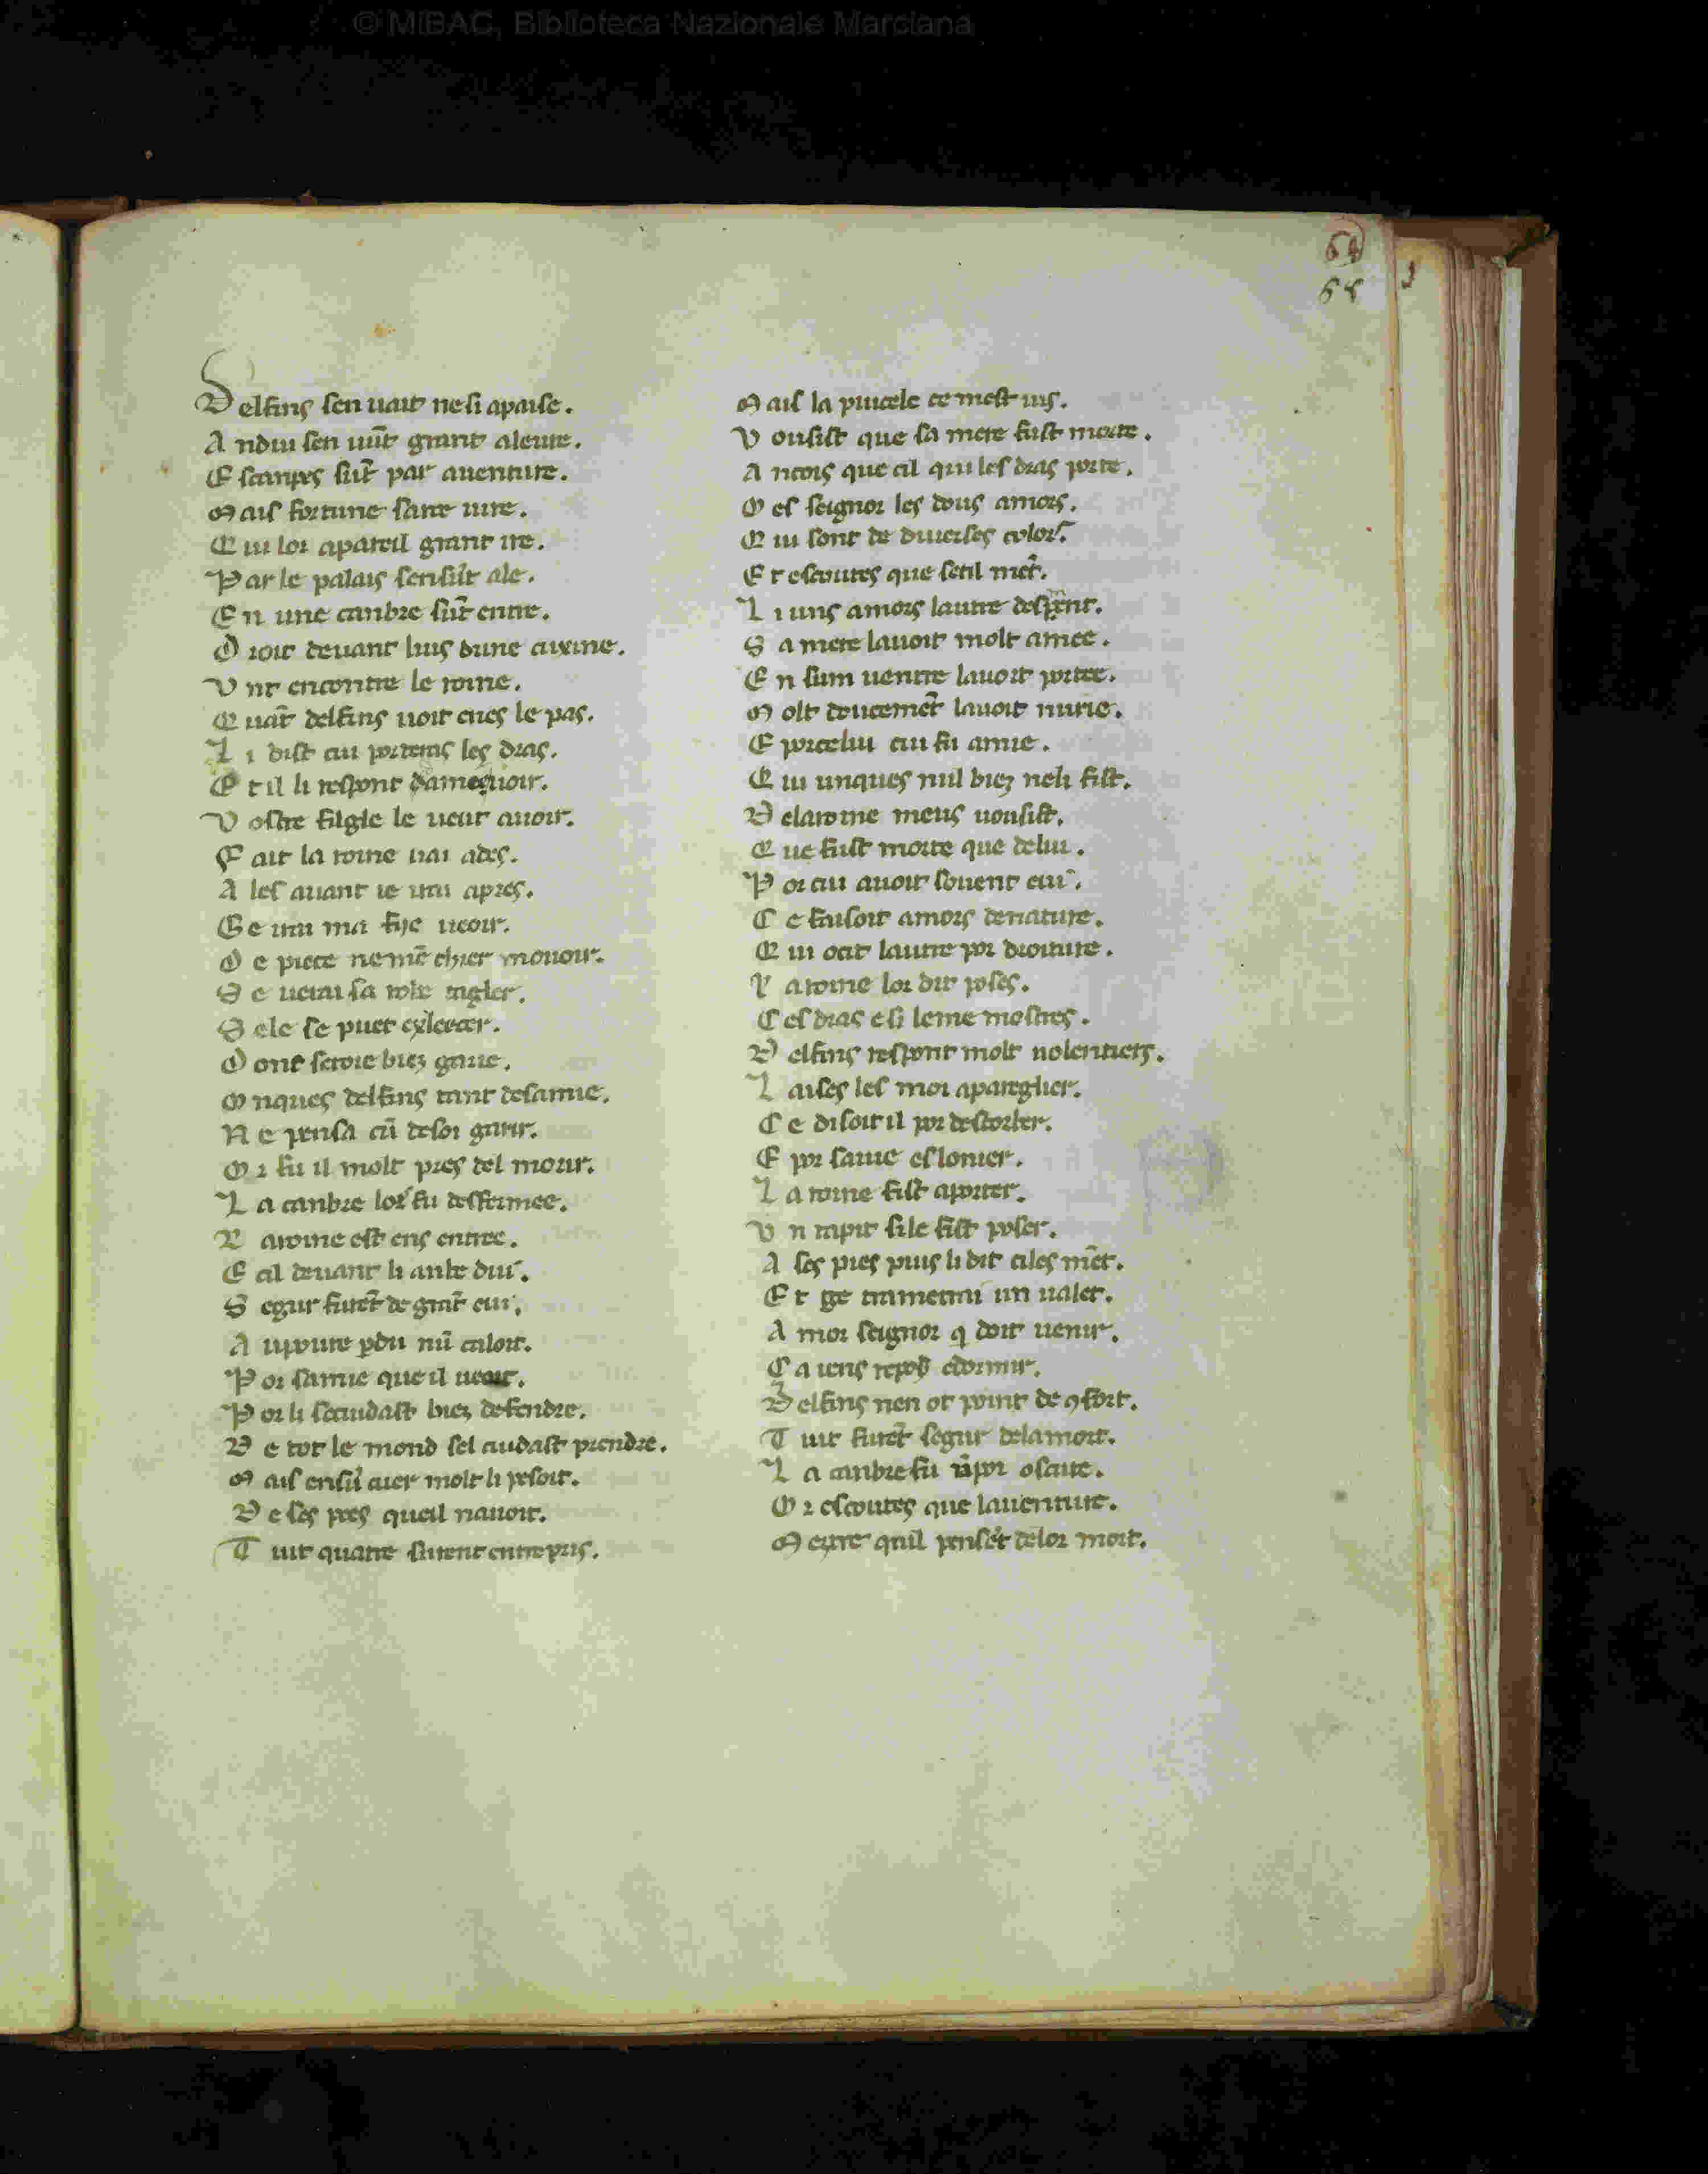 © MiBAC, Biblioteca Nazionale Marciana
64
65
Delfins sen uait ne si apaise.
A ndui sen uūt grant aleure.
E scanpes sūt par auenture.
M ais fortune sane iure.
Q ui lor apareil grant ire.
P ar le palais sen sūt ale.
E n une canbre sūt entre.
D roit deuant luis dune cuxine.
V nt encontre le roine.
Q uāt delfins uoit enes le pas.
L i dist cui portens les dras.
E t il li respont dame uoir.
V ostre filgle le ueut auoir.
F ait la roine uai ades.
A les auant ie urai apres.
G e urai ma fije ueoir.
D e piece ne mē chier mouoir.
S e uerai sa robe tagler.
S ele se puet exleecer.
D ont seroie biez garie.
O nques delfins tant de samie.
N e pensa cū de soi garir.
O r fu il molt pres del morir.
L a canbre lor fu deffermee.
L aroine est ens entree.
E cil deuant li anbe dui.
S egur furēt de grāt eui.
A upoure pdu nū caloit.
P or samie que il ueoit.
P or li secuidast biez defendre.
D e tot le mond sel cuidast prendre.
M ais ensur cuer molt li pesoit.
D e ses pres queil nauoit.
T uit quatre furent entrepris.
M ais la pucele ce mest uis.
V ousist que sa mere fust morte.
A ncois que cil qui les dras porte.
O es seignor les dous amors.
Q ui sont de diuerses colors.
E t escoutes que senil mēt.
L i uns amors lautre desprent.
S a mere lauoit molt amee.
E n sum uentre lauoit portee.
M olt doucemēt lauoit nurie.
E porcelui cui fu amie.
Q ui unques nul biez neli fist.
D elaroine meus uousist.
Q ue fust morte que delui.
P or cui auoit souent eui.
C e faisoit amors denature.
Q ui ocit lautre por droiture.
L aroine lor dit poses.
C es dras e si leme mostres.
D elfins respont molt uolentiers.
L aises les moi apareglier.
C e disoit il por destorber.
E por samie eslonier.
L a roine fist aporter.
V n tapit sile fist poser.
A ses pies puis li dit ciles mēt.
E t ge trametrai un ualet.
A mor seignor q doit uenir.
C a iens repos edormir.
D elfins nen ot point de ꝯfort.
T uit furēt segur delamort.
L a canbre fu ūpoi oscure.
O r escoutes que lauenture.
M entre quil pensēt delor mort.